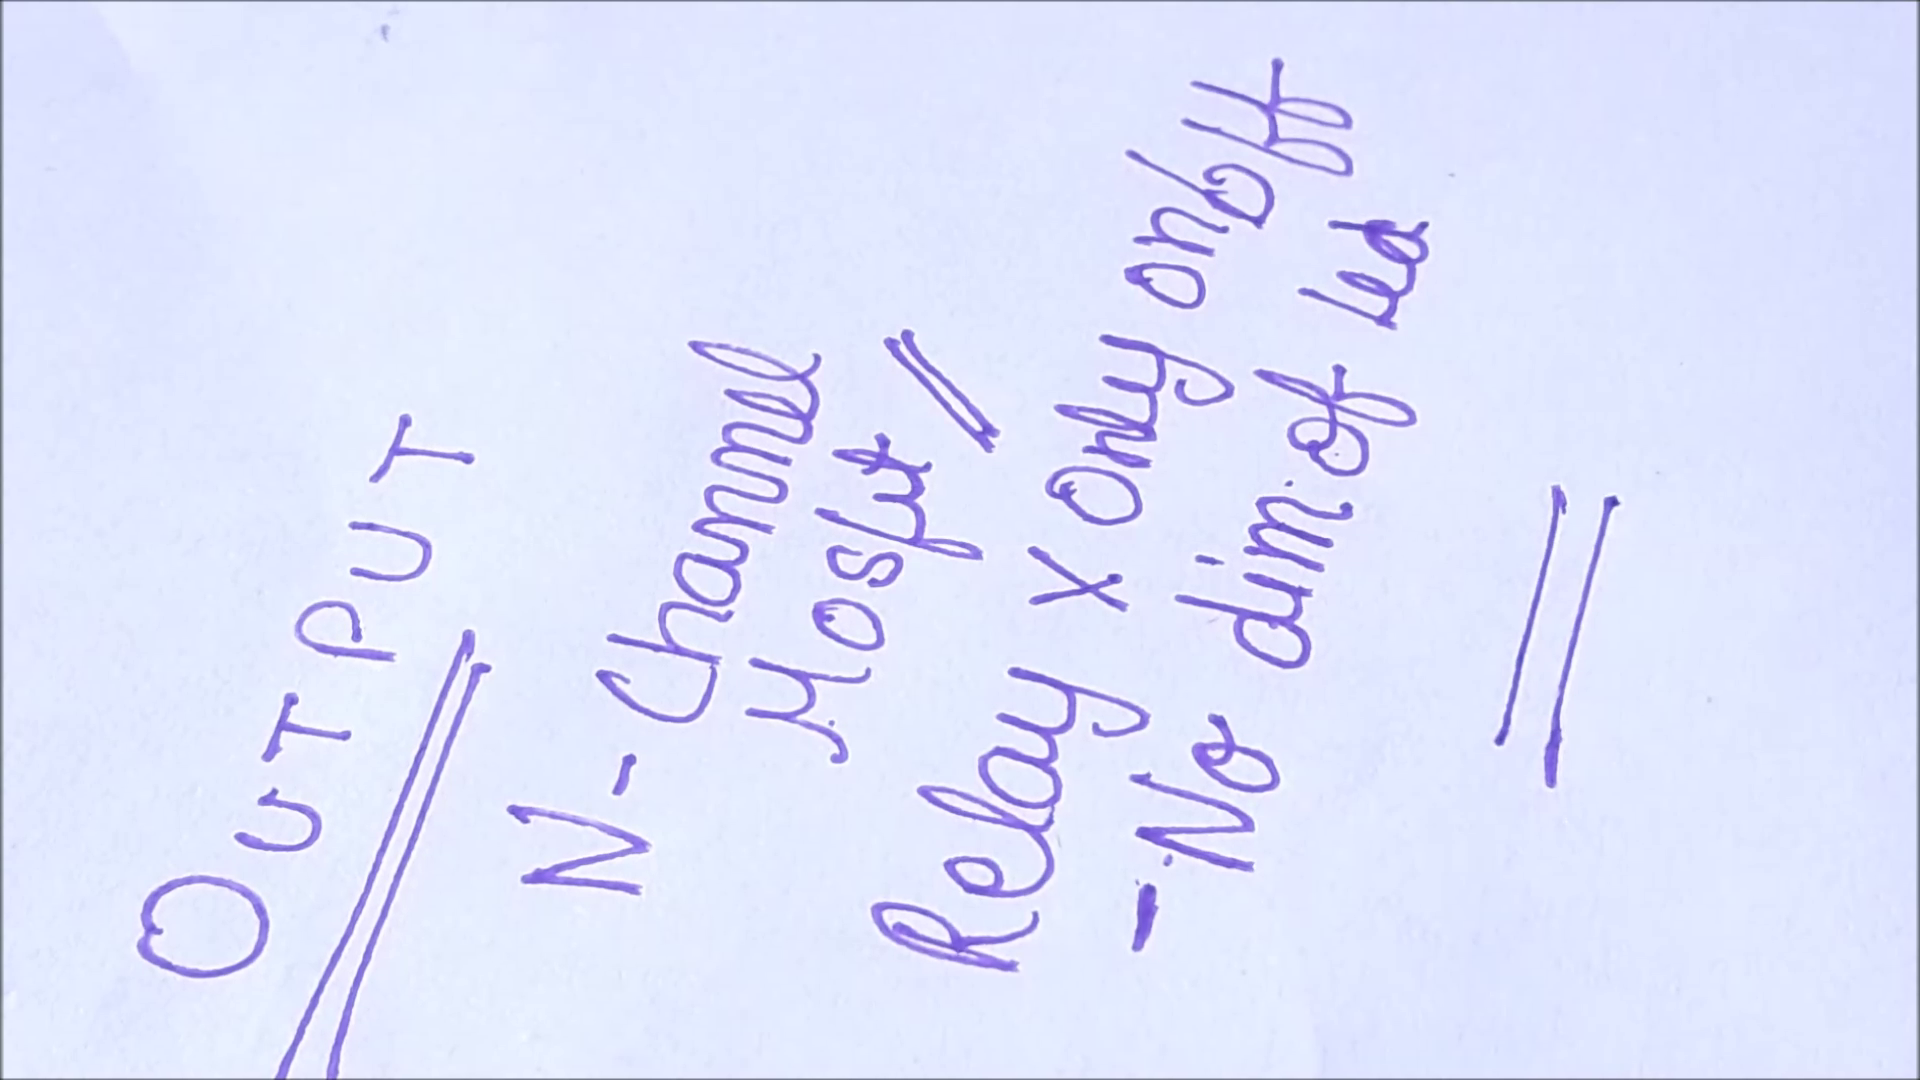 OUTPUT
N-Channel
Mosfet
Relay x only on/off
- No dim of led